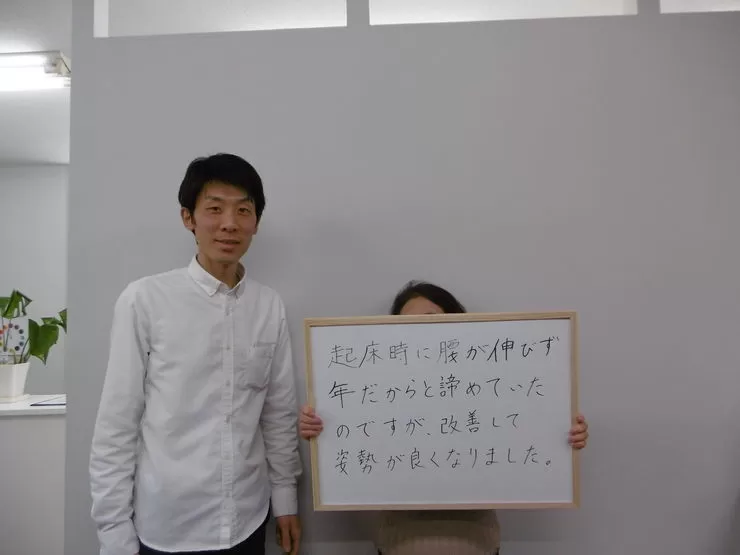 起床時に腰が伸びず
年だからと諦めていた
のですが、改善して
姿勢が良くなりました。